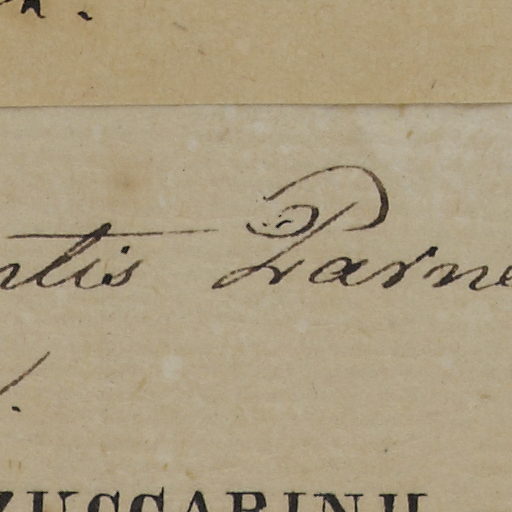 ntis Parne
ZUCCARINII